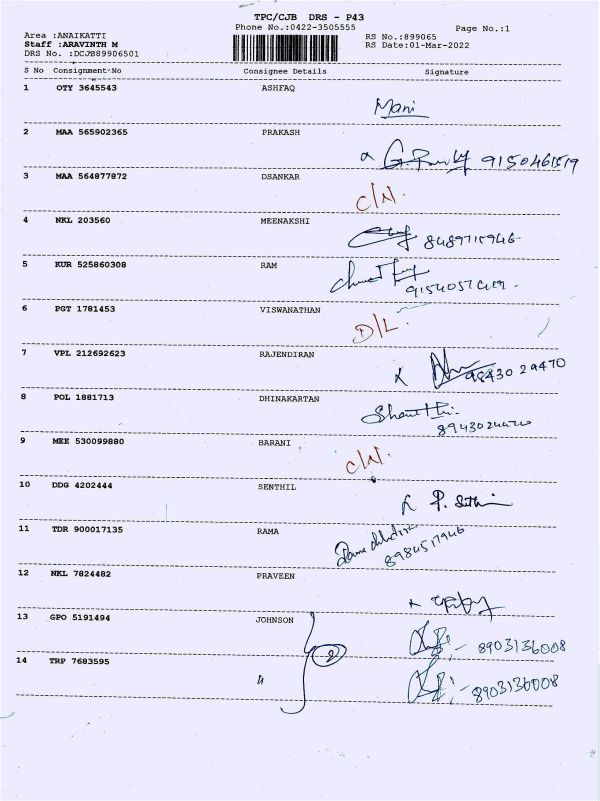 TPC/CJB DRS - P43
Phone No.:0422-3505555
Page No.:1
Area :ANAIKATTI
Staff :ARAVINTH M
DRS No. :DCJB89906501
RS No.:899065
RS Date:01-Mar-2022
S No Consignment No Consignee Details Signature
1 OTY 3645543 ASHFAQ
Mani
2 MAA 565902365 PRAKASH
9150461519
3 MAA 564877872 DSANKAR
C/N.
4 NKL 203560 MEENAKSHI
8489711946
5 KUR 525860308 RAM
6 PGT 1781453 VISWANATHAN
D/L.
7 VPL 212692623 RAJENDIRAN
98430 29470
8 POL 1881713 DHINAKARTAN
9 MEE 530099880 BARANI
C/N.
10 DDG 4202444 SENTHIL
P. Senthil
11 TDR 900017135 RAMA
8984517946
12 NKL 7824482 PRAVEEN
13 GPO 5191494 JOHNSON
8903136008
2
14 TRP 7683595 "
8903136008